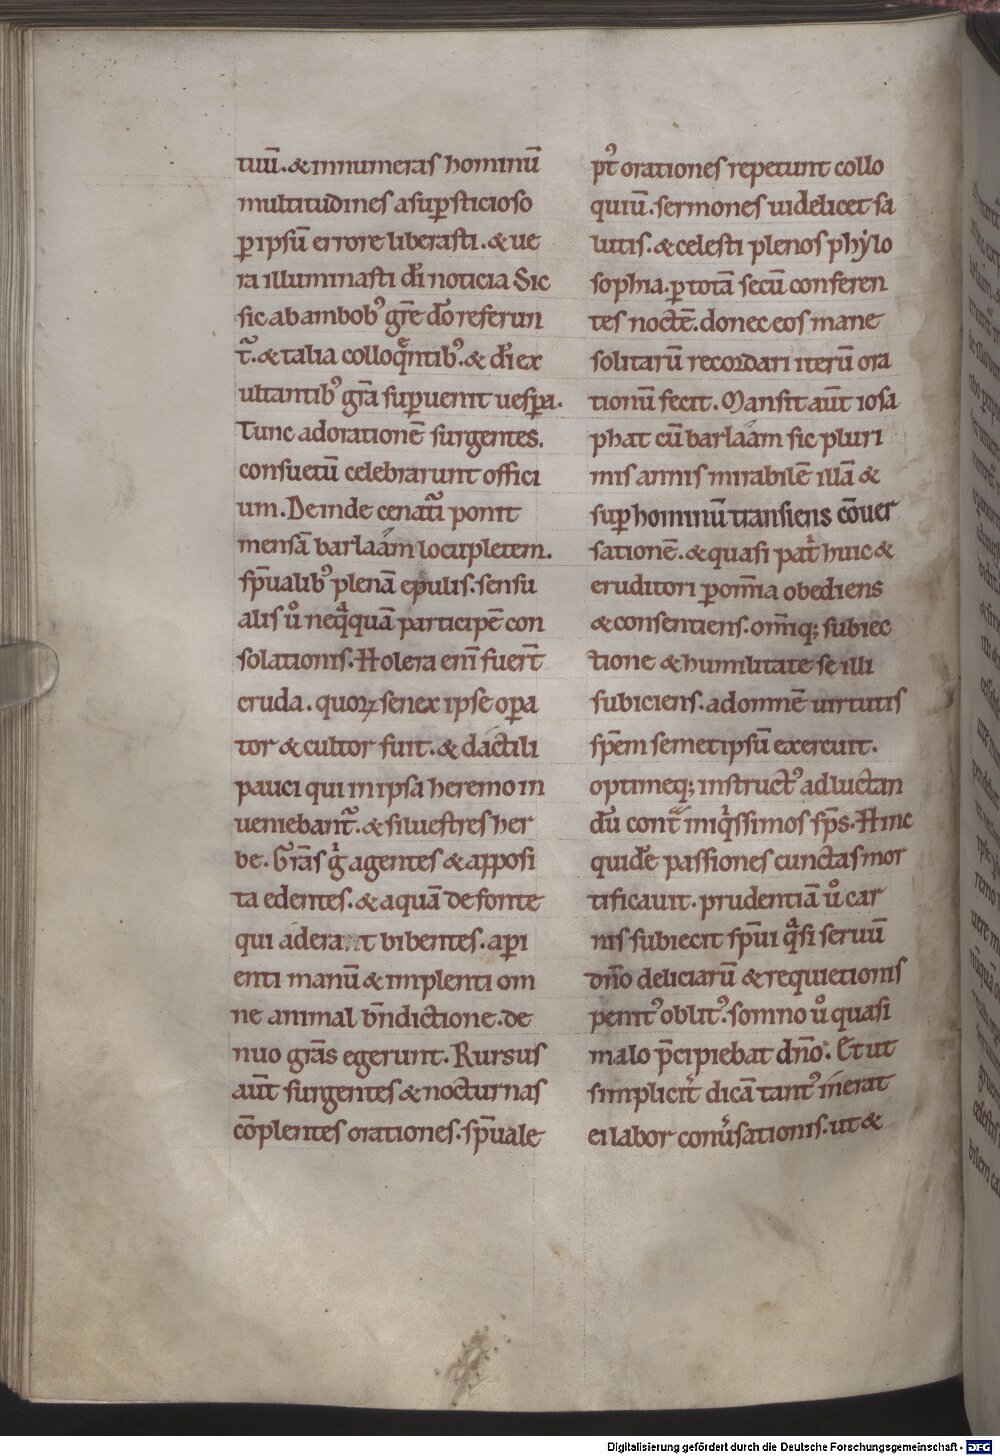 tuū. & innumeras hominū
multitudines a sup̱sticioso
p̱ ipsū errore liberasti. & ue
ra illuminasti dī noticia Sic
sic ab ambobꝰ gr̄e do̅ referun
t᷑. & talia colloq̄ntibꝰ. & dī ex
ultantibꝰ gr̄a sup̱uenit uesp̱a.
Tunc ad orationē surgentes.
consuetū celebrarunt offici
um. Deinde cenatū ponit
mensā barlaám locupletem.
sp̄ualibꝰ plenā epulis. sensu
alis uͦ neqͣquā participē con
solationis. Holera enī fuer̄t
cruda. quoꝝ senex ipse op̱a
tor & cultor fuit. & dactili
pauci qui in ipsa heremo in
ueniebant᷑. & siluestres her
be. Gr̄as gͥ agentes & apposi
ta edentes. & aquā de fonte
qui adera t bibentes. ap̱i
enti manū & implenti om
ne animal bn̄dictione. de
nuo grā̄s egerunt. Rursus
aūt surgentes & nocturnas
cōplentes orationes. sp̄uale
pꝰt orationes repetunt collo
quiū. sermones uidelicet sa
lutis. & celesti plenos phẏlo
sophia. p̱ totā secū conferen
tes noctē. donec eos mane
solitarū recordari iterū ora
tionū fecit. Mansit aūt iosa
phat cū barlaám sic pluri
mis annis mirabilē illā &
sup̱ hominū transiens cōuer
sationē. & quasi pat̄ huic &
eruditori p̱ om̄ia obediens
& consentiens. om̄iq; subiec
tione & humilitate se illi
subiciens. ad omnē uirtutis
sp̄em semet ipsū exercuit.
optimeq; instructꝰ ad luctan
dū cont̄ᷓ iniqͥssimos sp̄s. Hinc
quidē passiones cunctas mor
tificauit. prudentiā uͦ car
nis subiecit sp̄ui qͣsi seruū
dn̄o deliciarū & requietionis
penitꝰ oblitꝰ. somno uͦ quasi
malo p̄cipiebat dn̄o. Et ut
simplicit̄ dicā tantꝰ inerat
ei labor conuͥsationis. ut &
Digitalisierung gefördert durch die Deutsche Forschungsgemeinschaft - DFG